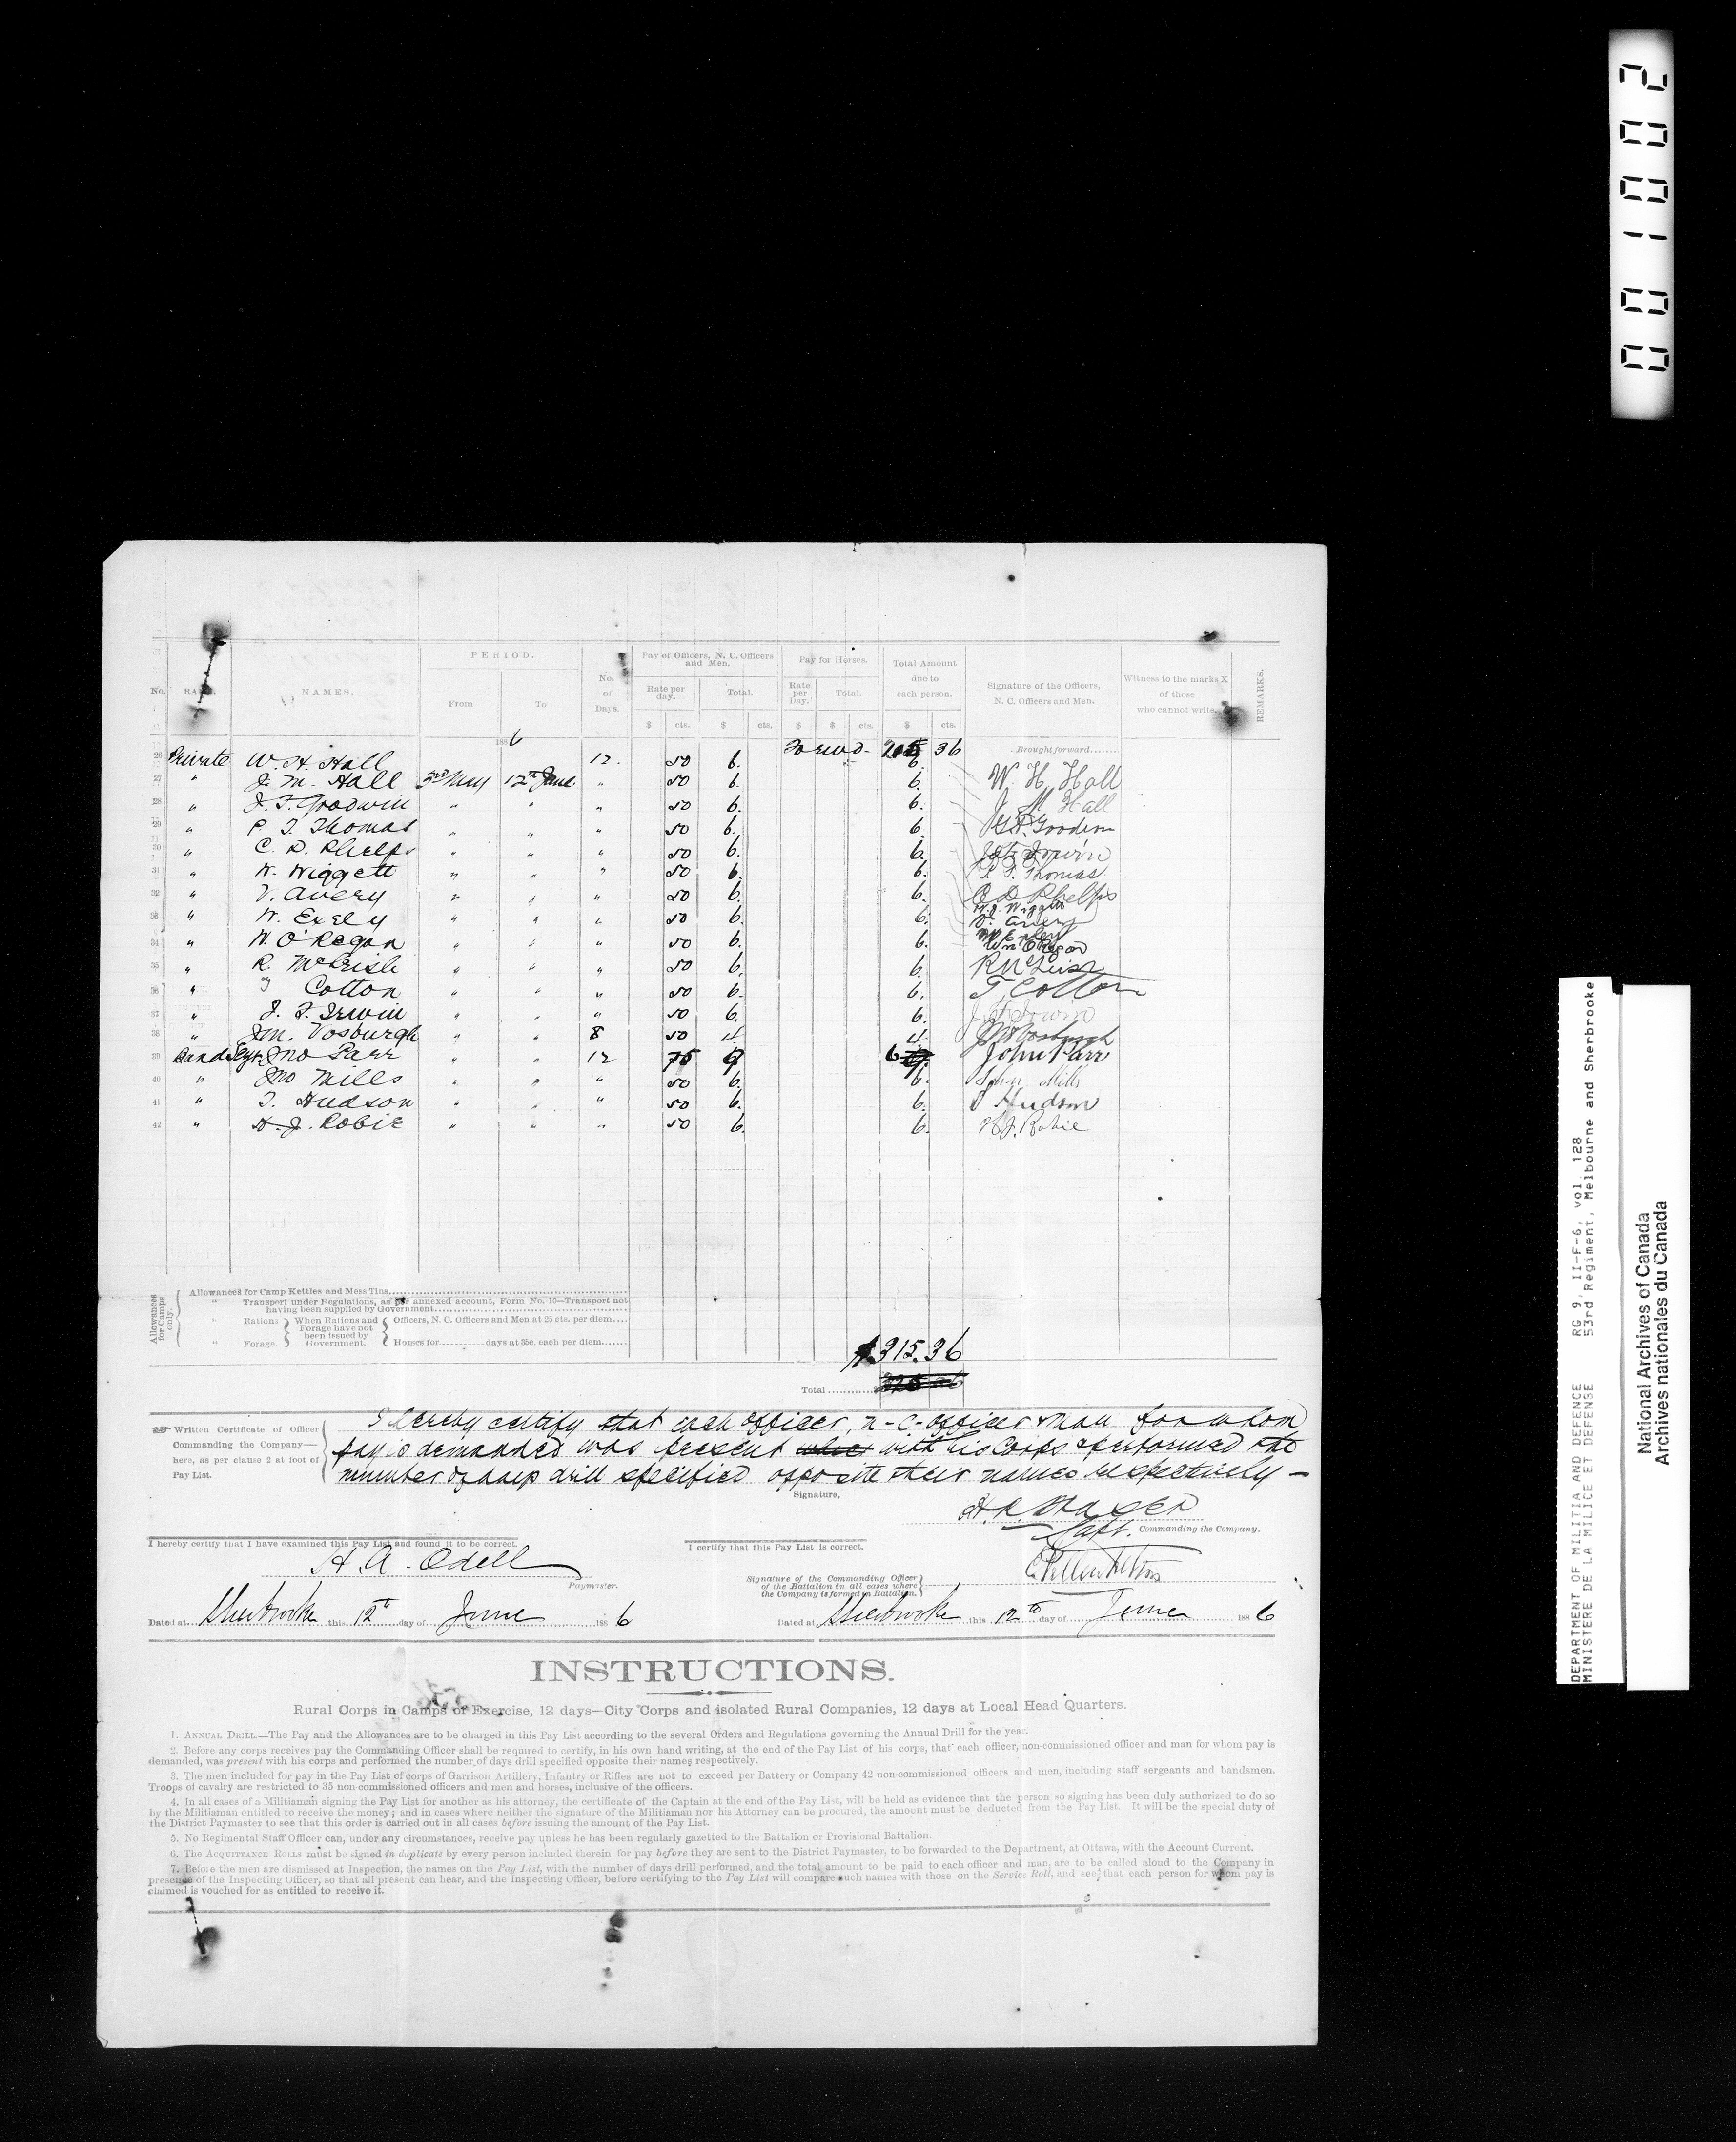 001002
No. RANK. NAMES. PERIOD. From To No. of Days. Pay of Officers, N. C. Officers and Men. Rate per day. Total. Pay for Horses. Rate per Day. Total. Total Amount due to each person. Signature of the Officers, N. C. Officers and Men. Witness to the marks X of those who cannot write. REMARKS.
$ cts. $ cts. $ $ cts. $ cts.
1886 Forwd- 36 Brought forward
26 Private W. H. Hall 12. 50 6. 6. W. H. Hall
27 " J. M. Hall 3rd May 12th June " 50 6. 6. J M Hall
28 " J. F. Goodwin " " " 50 6. 6.
29 " P. T. Thomas " " " 50 6. 6. J. F. Irwin
30 " C. D. Phelps " " " 50 6. 6. P. T. Thomas
31 " W. Wiggett " " " 50 6. 6. C D Phelps
32 " V. Avery " " " 50 6. 6. W. J. Wiggett
33 " W. Exely " " " 50 6. 6. V. Avery
34 " W. O'Regan " " " 50 6. 6. Wm O'Regan
35 " R. McLeish " " " 50 6. 6. R McLeish
36 " T Cotton " " " 50 6. 6. T. Cotton
37 " J. F. Irwin " " " 50 6. 6. J. F. Irwin
38 " Jm. Vosburgh " " 8 50 4 4. J M Vosburgh
39 Band Sgt. Jno Parr " " 12 75 9 6 John Parr
40 " Jno Mills " " " 50 6. 6. John Mills
41 " T. Hudson " " " 50 6. 6. T Hudson
42 " H. J. Robie " " " 50 6. 6. H. J. Robie
Allowances for Camps only.
Allowances for Camp Kettles and Mess Tins
" Transport under Regulations, as per annexed account, Form No. 10—Transport not having been supplied by Government
" Rations } When Rations and Forage have not been issued by Government. { Officers, N. C. Officers and Men at 25 cts. per diem
" Forage. Horses for days at 35c. each per diem
$315.36
Total
Written Certificate of Officer Commanding the Company—here, as per clause 2 at foot of Pay List.
I hereby certify that each officer, n-c-officer & man for whom
pay is demanded was present with his Corps & performed the
number of days drill specified opposite their names respectively -
Signature,
H. R. Fraser
Capt. Commanding the Company.
I hereby certify that I have examined this Pay List and found it to be correct.
H. A. Odell
Paymaster.
Dated at Sherbrooke this 12th day of June 1886
I certify that this Pay List is correct.
Signature of the Commanding Officer of the Battalion in all cases where the Company is formed in Battalion.
Dated at Sherbrooke this 12th day of June 1886
INSTRUCTIONS.
Rural Corps in Camps of Exercise, 12 days—City Corps and isolated Rural Companies, 12 days at Local Head Quarters.
1. ANNUAL DRILL.—The Pay and the Allowances are to be charged in this Pay List according to the several Orders and Regulations governing the Annual Drill for the year.
2. Before any corps receives pay the Commanding Officer shall be required to certify, in his own hand writing, at the end of the Pay List of his corps, that each officer, non-commissioned officer and man for whom pay is
demanded, was present with his corps and performed the number of days drill specified opposite their names respectively.
3. The men included for pay in the Pay List of corps of Garrison Artillery, Infantry or Rifles are not to exceed per Battery or Company 42 non-commissioned officers and men, including staff sergeants and bandsmen.
Troops of cavalry are restricted to 35 non commissioned officers and men and horses, inclusive of the officers.
4. In all cases of a Militiaman signing the Pay List for another as his attorney, the certificate of the Captain at the end of the Pay List, will be held as evidence that the person so signing has been duly authorized to do so
by the Militiaman entitled to receive the money; and in cases where neither the signature of the Militiaman nor his Attorney can be procured, the amount must be deducted from the Pay List. It will be the special duty of
the District Paymaster to see that this order is carried out in all cases before issuing the amount of the Pay List.
5. No Regimental Staff Officer can, under any circumstances, receive pay unless he has been regularly gazetted to the Battalion or Provisional Battalion.
6. The ACQUITTANCE ROLLS must be signed in duplicate by every person included therein for pay before they are sent to the District Paymaster, to be forwarded to the Department, at Ottawa, with the Account Current.
7. Before the men are dismissed at Inspection, the names on the Pay List, with the number of days drill performed, and the total amount to be paid to each officer and man, are to be called aloud to the Company in
presence of the Inspecting Officer, so that all present can hear, and the Inspecting Officer, before certifying to the Pay List will compare such names with those on the Service Roll, and see that each person for whom pay is
claimed is vouched for as entitled to receive it.
DEPARTMENT OF MILITIA AND DEFENCE RG 9, II-F-6, vol 128
MINISTERE DE LA MILICE ET DEFENSE 53rd Regiment, Melbourne and Sherbrooke
National Archives of Canada
Archives nationales du Canada